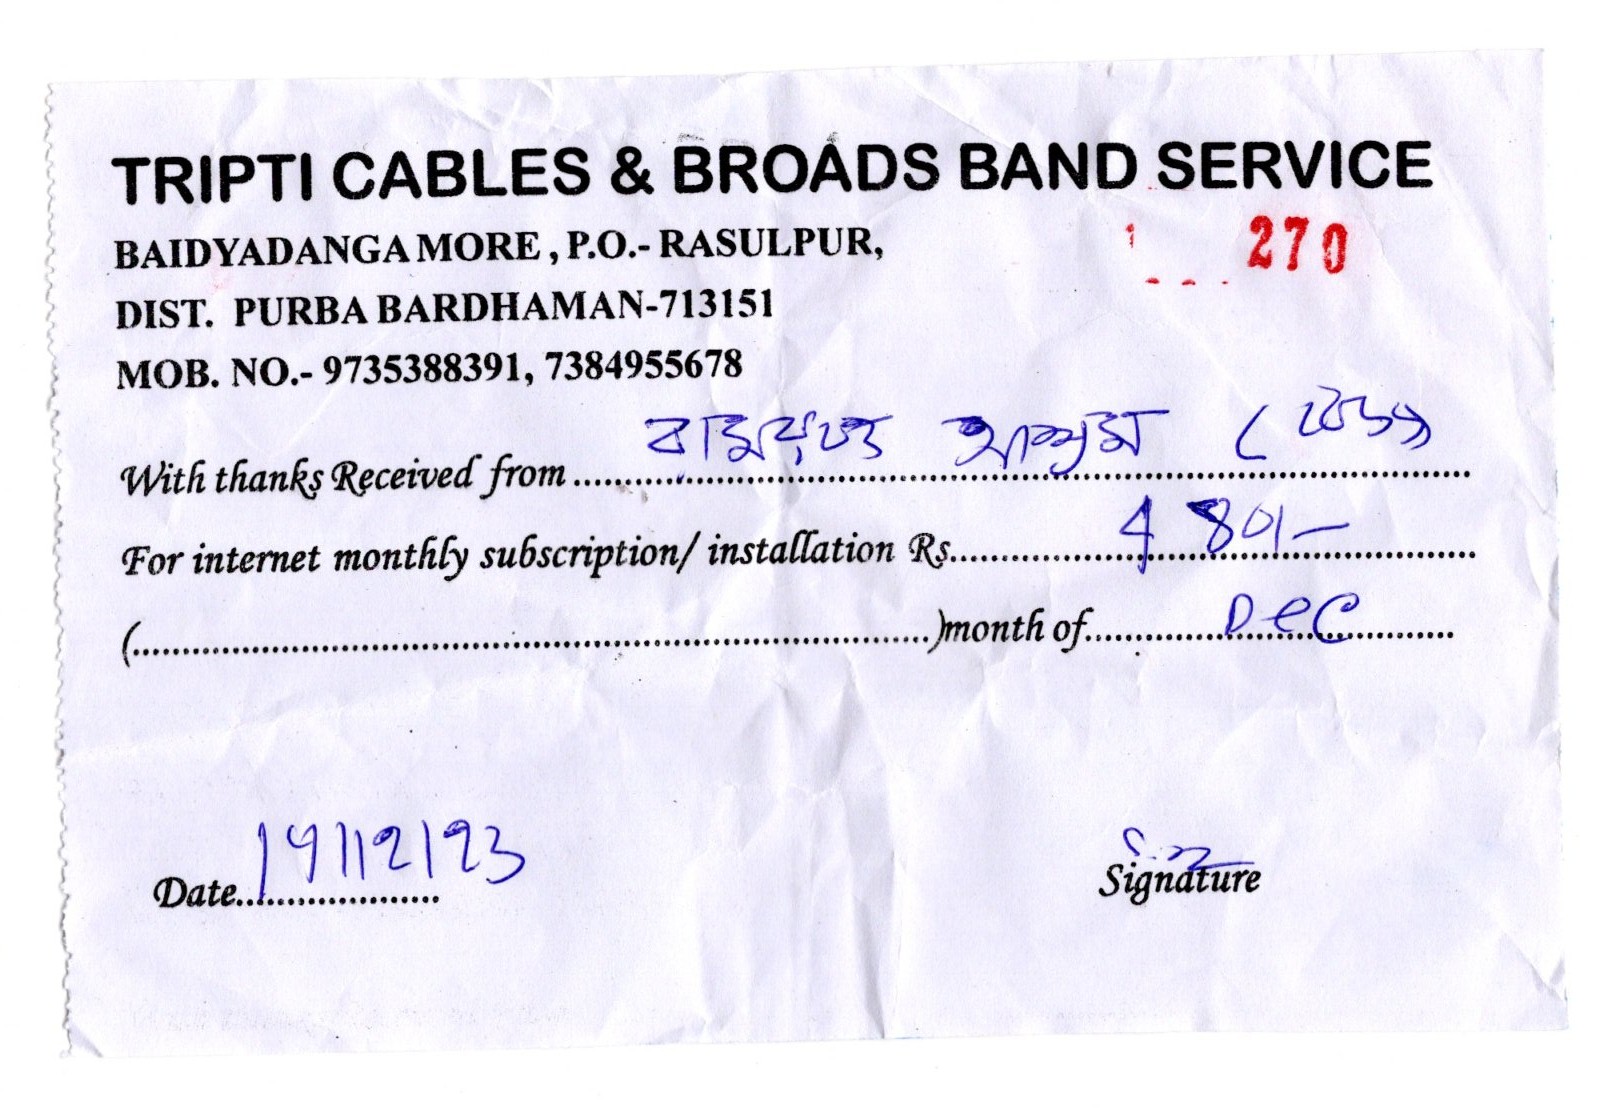 TRIPTI CABLES & BROADS BAND SERVICE
BAIDYADANGA MORE, P.O.- RASULPUR,
270
DIST. PURBA BARDHAMAN-713151
MOB. NO.- 9735388391, 7384955678
With thanks Received from.......... আশ্রম
For internet monthly subscription/ installation Rs.......... 480/-
(..........)month of.......... Dec
Date.......... 19/12/23
Signature